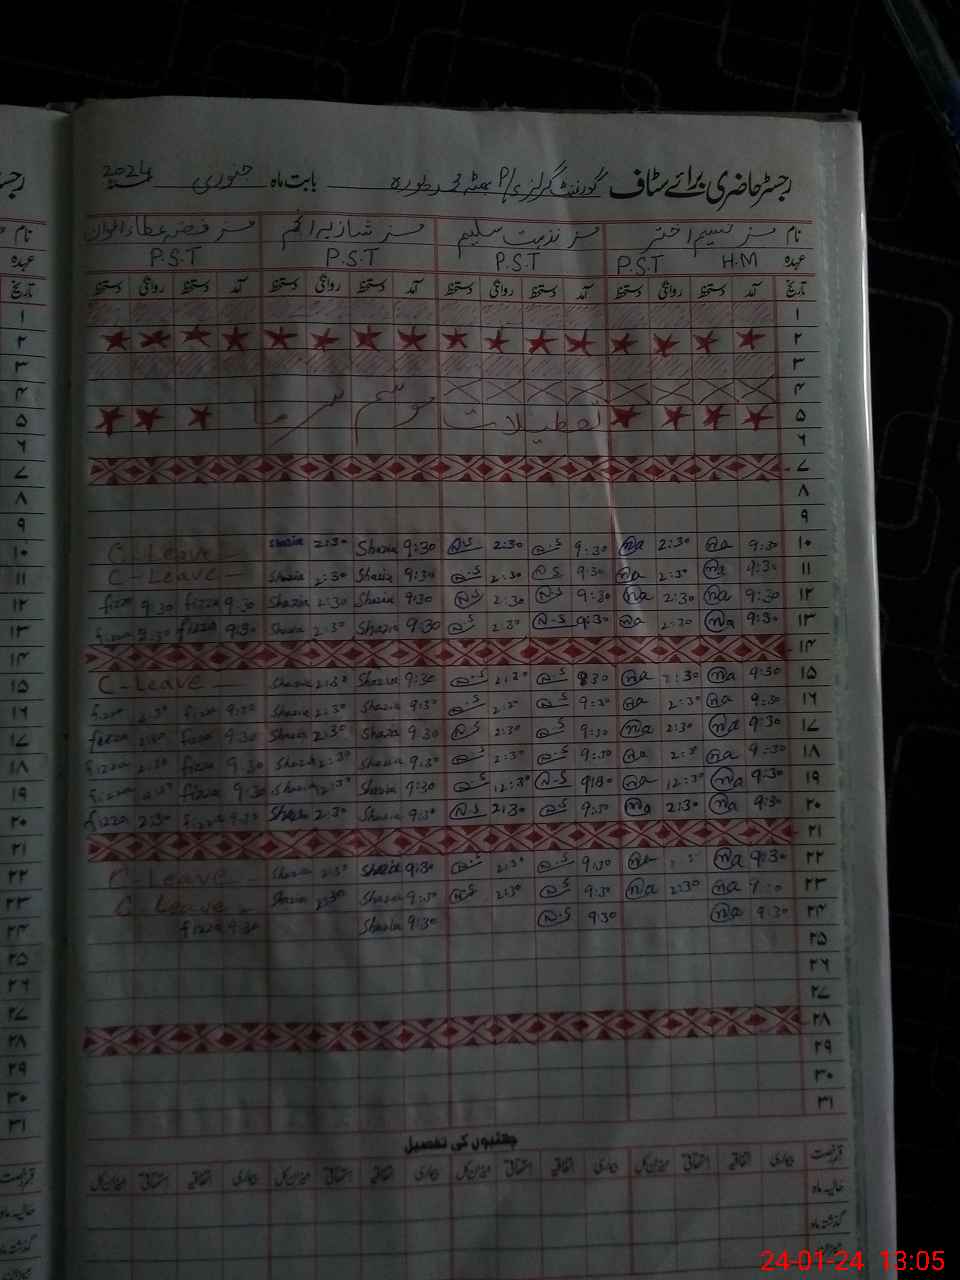 رجسٹر حاضری برائے سٹاف گورنمنٹ گرلز P/ بابت ماہ جنوری 2024
نام مسز نسیم اختر مسز نزہت سلیم مسز شازیہ انجم مسز فضہ عطاء
عہدہ H.M P.S.T P.S.T P.S.T P.S.T
تاریخ آمد دستخط روانگی دستخط آمد دستخط روانگی دستخط آمد دستخط روانگی دستخط آمد دستخط روانگی دستخط
۱
۲
۳
۴ موسم سرما
۵ تعطیلات
۶
۷
۸
۹
۱۰ 9:30 na 2:30 na 9:30 N.S 2:30 N.S 9:30 Shazia 2:30 Shazia C-Leave
۱۱ 9:30 na 2:30 na 9:30 N.S 2:30 N.S 9:30 Shazia 2:30 Shazia C-Leave
۱۲ 9:30 na 2:30 na 9:30 N.S 2:30 N.S 9:30 Shazia 2:30 Shazia 9:30 fizza 9:30 fizza
۱۳ 9:30 na 2:30 na 9:30 N.S 2:30 N.S 9:30 Shazia 2:30 Shazia 9:30 fizza 2:30 fizza
۱۴
۱۵ 9:30 na 2:30 na N.S N.S 9:30 Shazia 2:30 Shazia C-Leave
۱۶ 9:30 na 2:30 na 9:30 N.S 2:30 N.S 9:30 Shazia 2:30 Shazia 9:30 fizza 2:30 fizza
۱۷ 9:30 na 2:30 na 9:30 N.S 2:30 N.S 9:30 Shazia 2:30 Shazia 9:30 fizza 2:30 fizza
۱۸ 9:30 na na 9:30 N.S 2:30 N.S 9:30 Shazia 2:30 Shazia 9:30 fizza 2:30 fizza
۱۹ 9:30 na 12:30 na N.S 12:30 N.S 9:30 Shazia 12:30 Shazia 9:30 fizza fizza
۲۰ 9:30 na 2:30 na 9:30 N.S 2:30 N.S 9:30 Shazia 2:30 Shazia 9:30 fizza 2:30 fizza
۲۱
۲۲ 9:30 na na 9:30 N.S 2:30 N.S 9:30 Shazia 2:30 Shazia C-Leave
۲۳ na 2:30 na 9:30 N.S 2:30 N.S 9:30 Shazia 2:30 Shazia C Leave
۲۴ 9:30 na 9:30 N.S 9:30 Shazia 9:30 fizza
۲۵
۲۶
۲۷
۲۸
۲۹
۳۰
۳۱
چھٹیوں کی تفصیل
قسم رخصت بیماری اتفاقیہ استحقاقی میزان کل بیماری اتفاقیہ استحقاقی میزان کل بیماری اتفاقیہ استحقاقی میزان کل بیماری اتفاقیہ استحقاقی میزان کل
حالیہ ماہ
گذشتہ ماہ
24-01-24 13:05